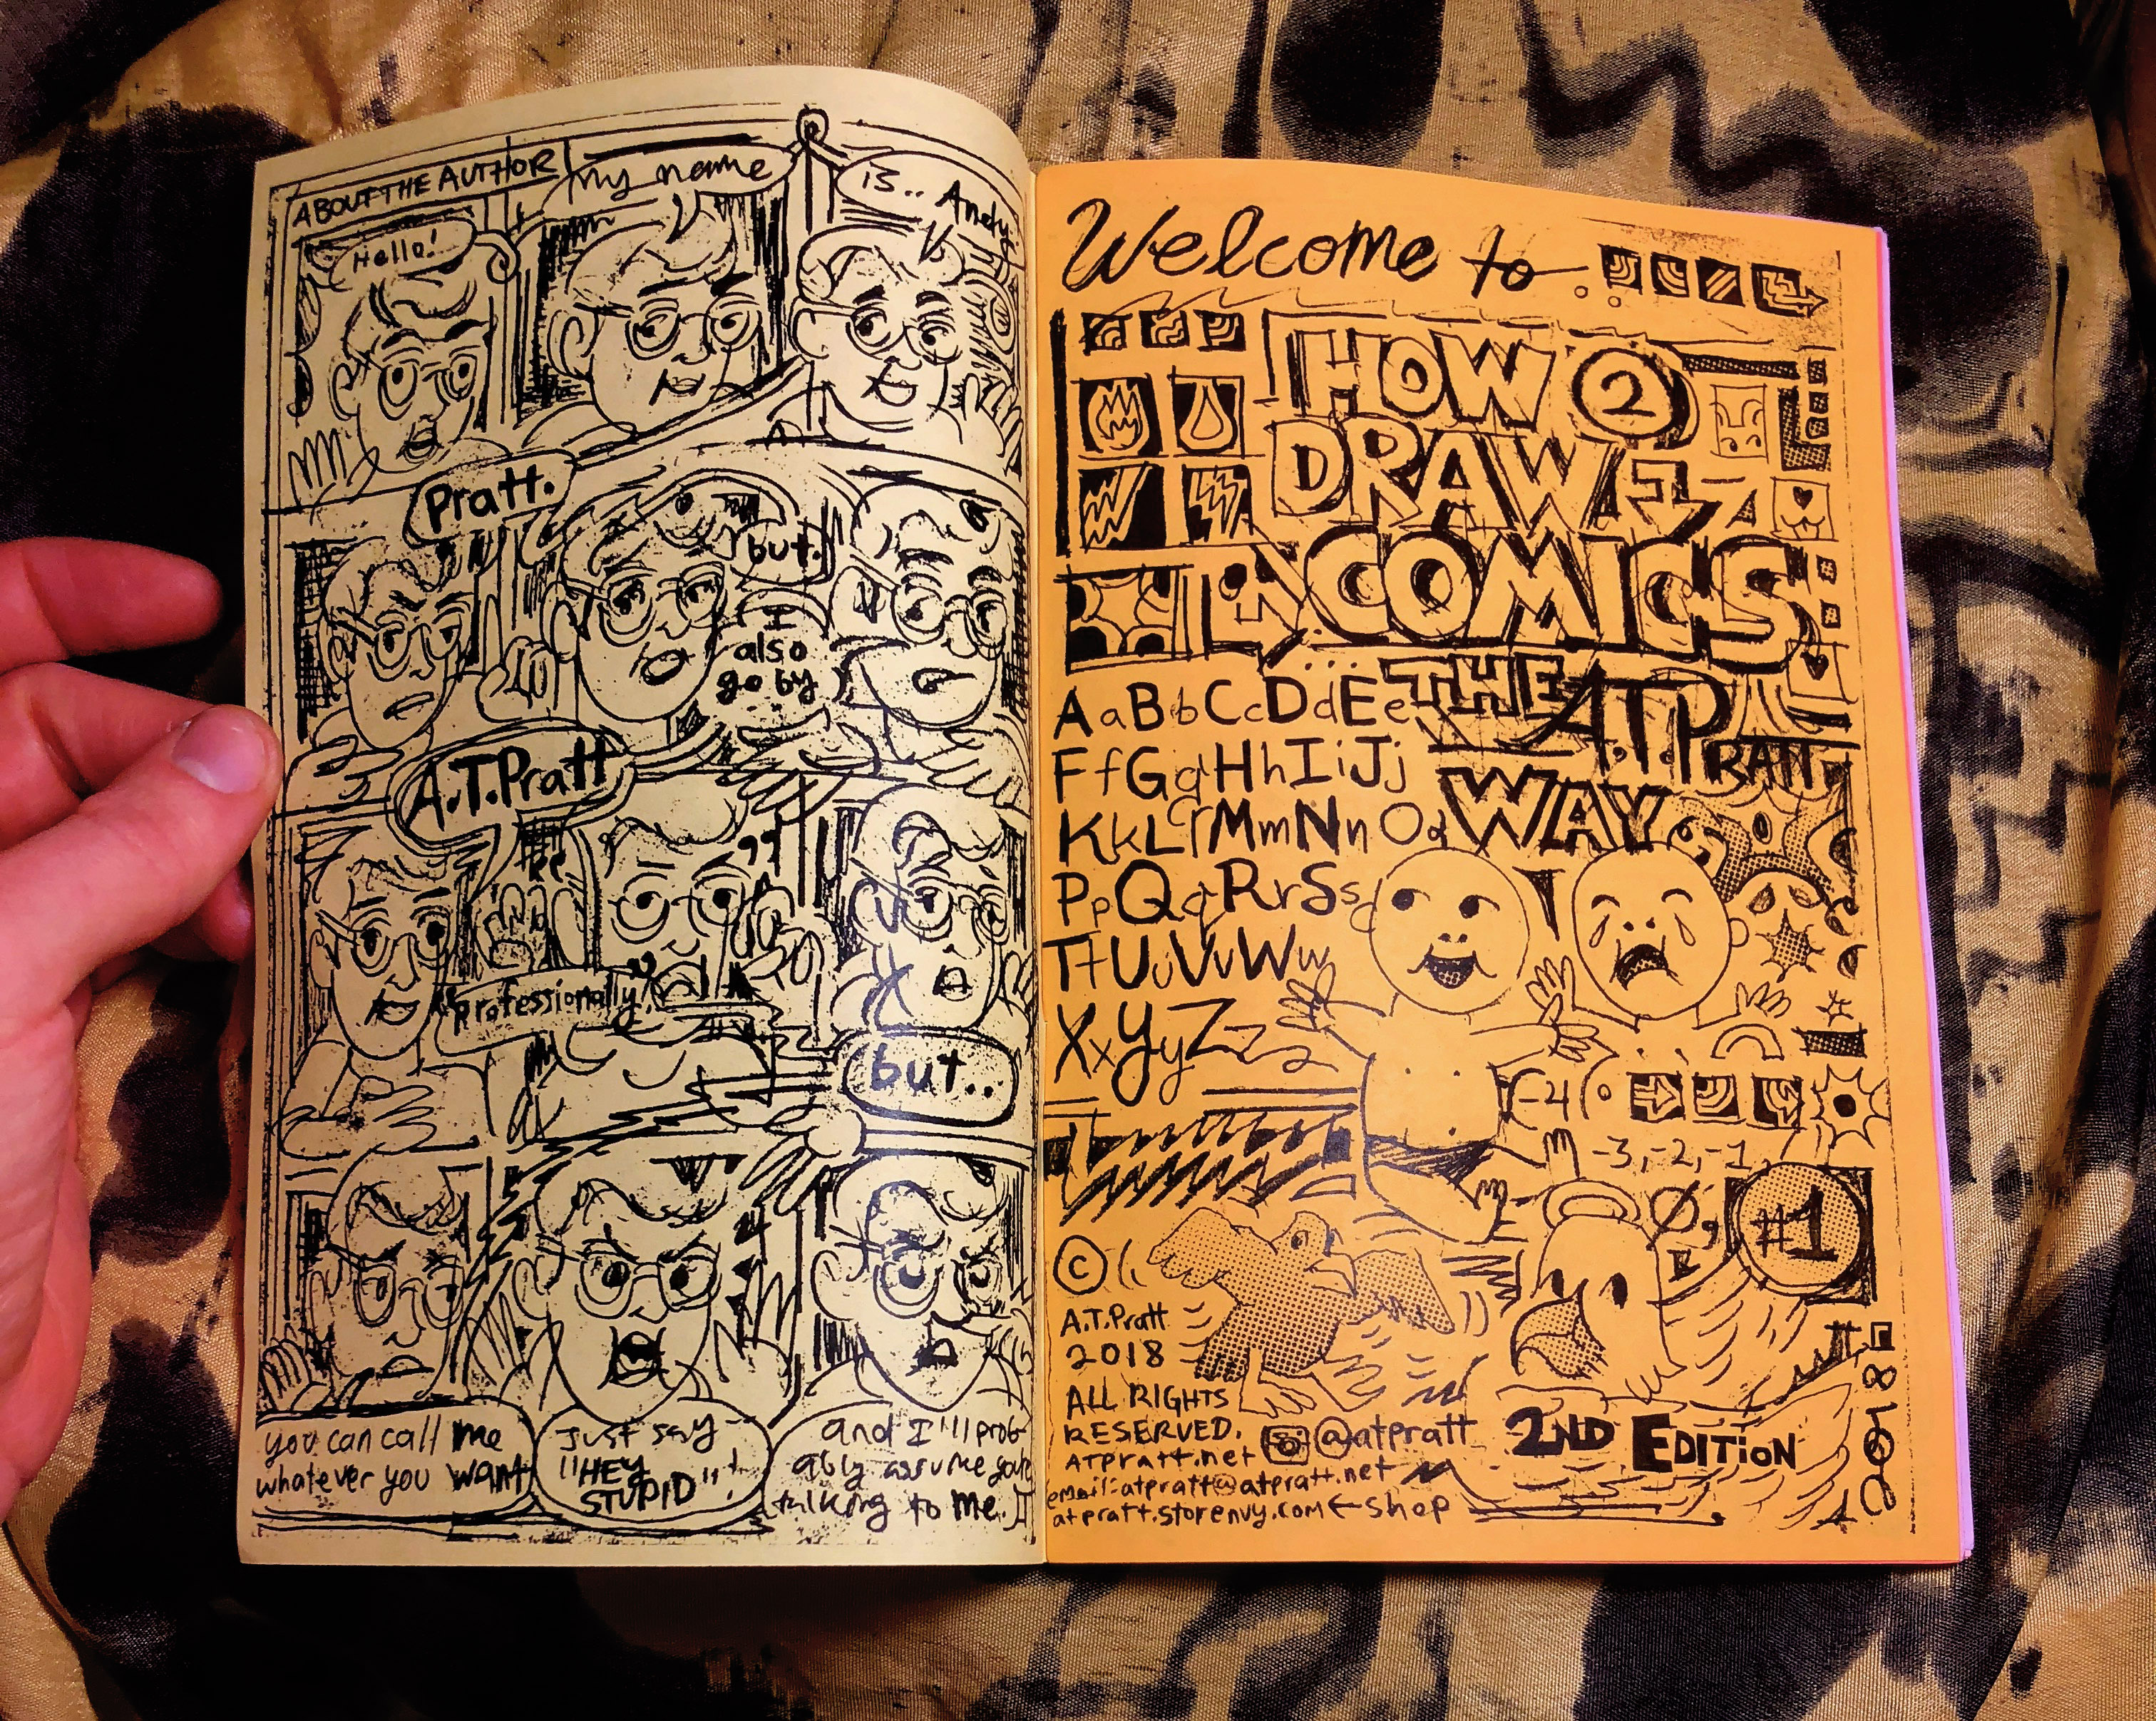 ABOUT THE AUTHOR
Hello!
My name
is.. Andy
Pratt.
but.
I
also
go by
...
A.T.Pratt
"professionally"
but..
you can call me
whatever you want
Just say
"HEY
STUPID"!
and I'll prob-
ably assume you're
talking to me.
Welcome to...
HOW 2
DRAW
COMICS
THE A.T.PRATT
WAY
A a B b C c D d E e
F f G g H h I i J j
K k L l M m N n O o
P p Q q R r S s
T t U u V v W w
X x Y y Z z
-4
-3, -2, -1,
Ø,
#1
© A.T.Pratt
2018
ALL RIGHTS
RESERVED.
ATPratt.net @atpratt
email: atpratt@atpratt.net
atpratt.storenvy.com ← shop
2ND EDITION
2018